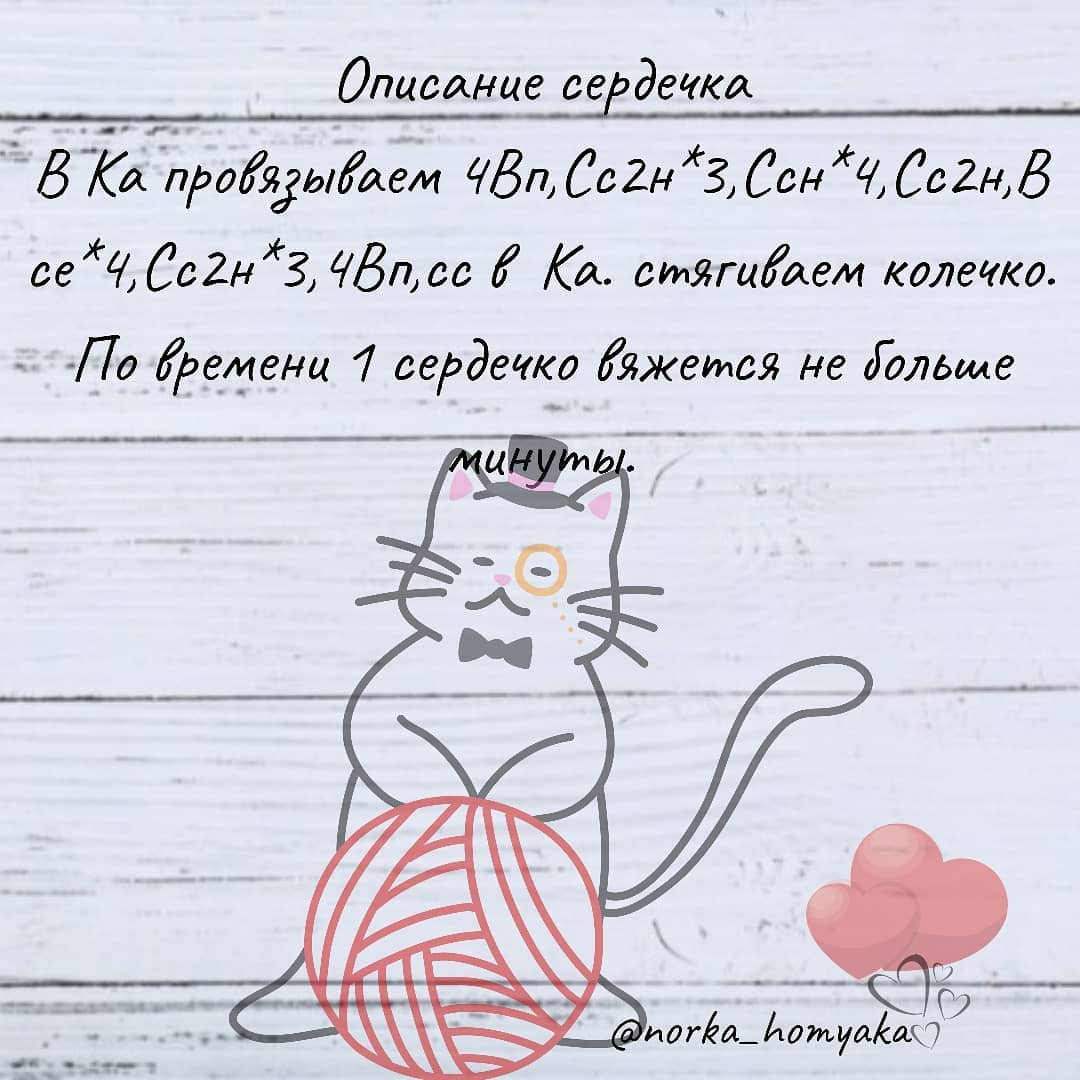 Описание сердечка
В Ка провязываем 4Вп,Сс2н*3,Ссн*4,Сс2н,В
се*4,Сс2н*3,4Вп,сс в Ка. стягиваем колечко.
По времени 1 сердечко вяжется не больше
минуты.
@norka_homyaka